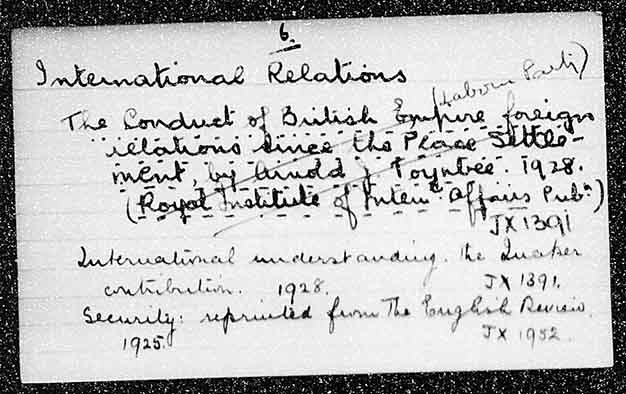 6.
International Relations
(Labour Party)
The Conduct of British Empire foreign
relations since the Peace Settle-
ment, by Arnold J. Toynbee. 1928.
(Royal Institute of Intern. Affairs Pubn)
JX 1391
International understanding. the Quaker
contribution. 1928. JX 1391.
Security: reprinted from The English Review.
1925. JX 1952.